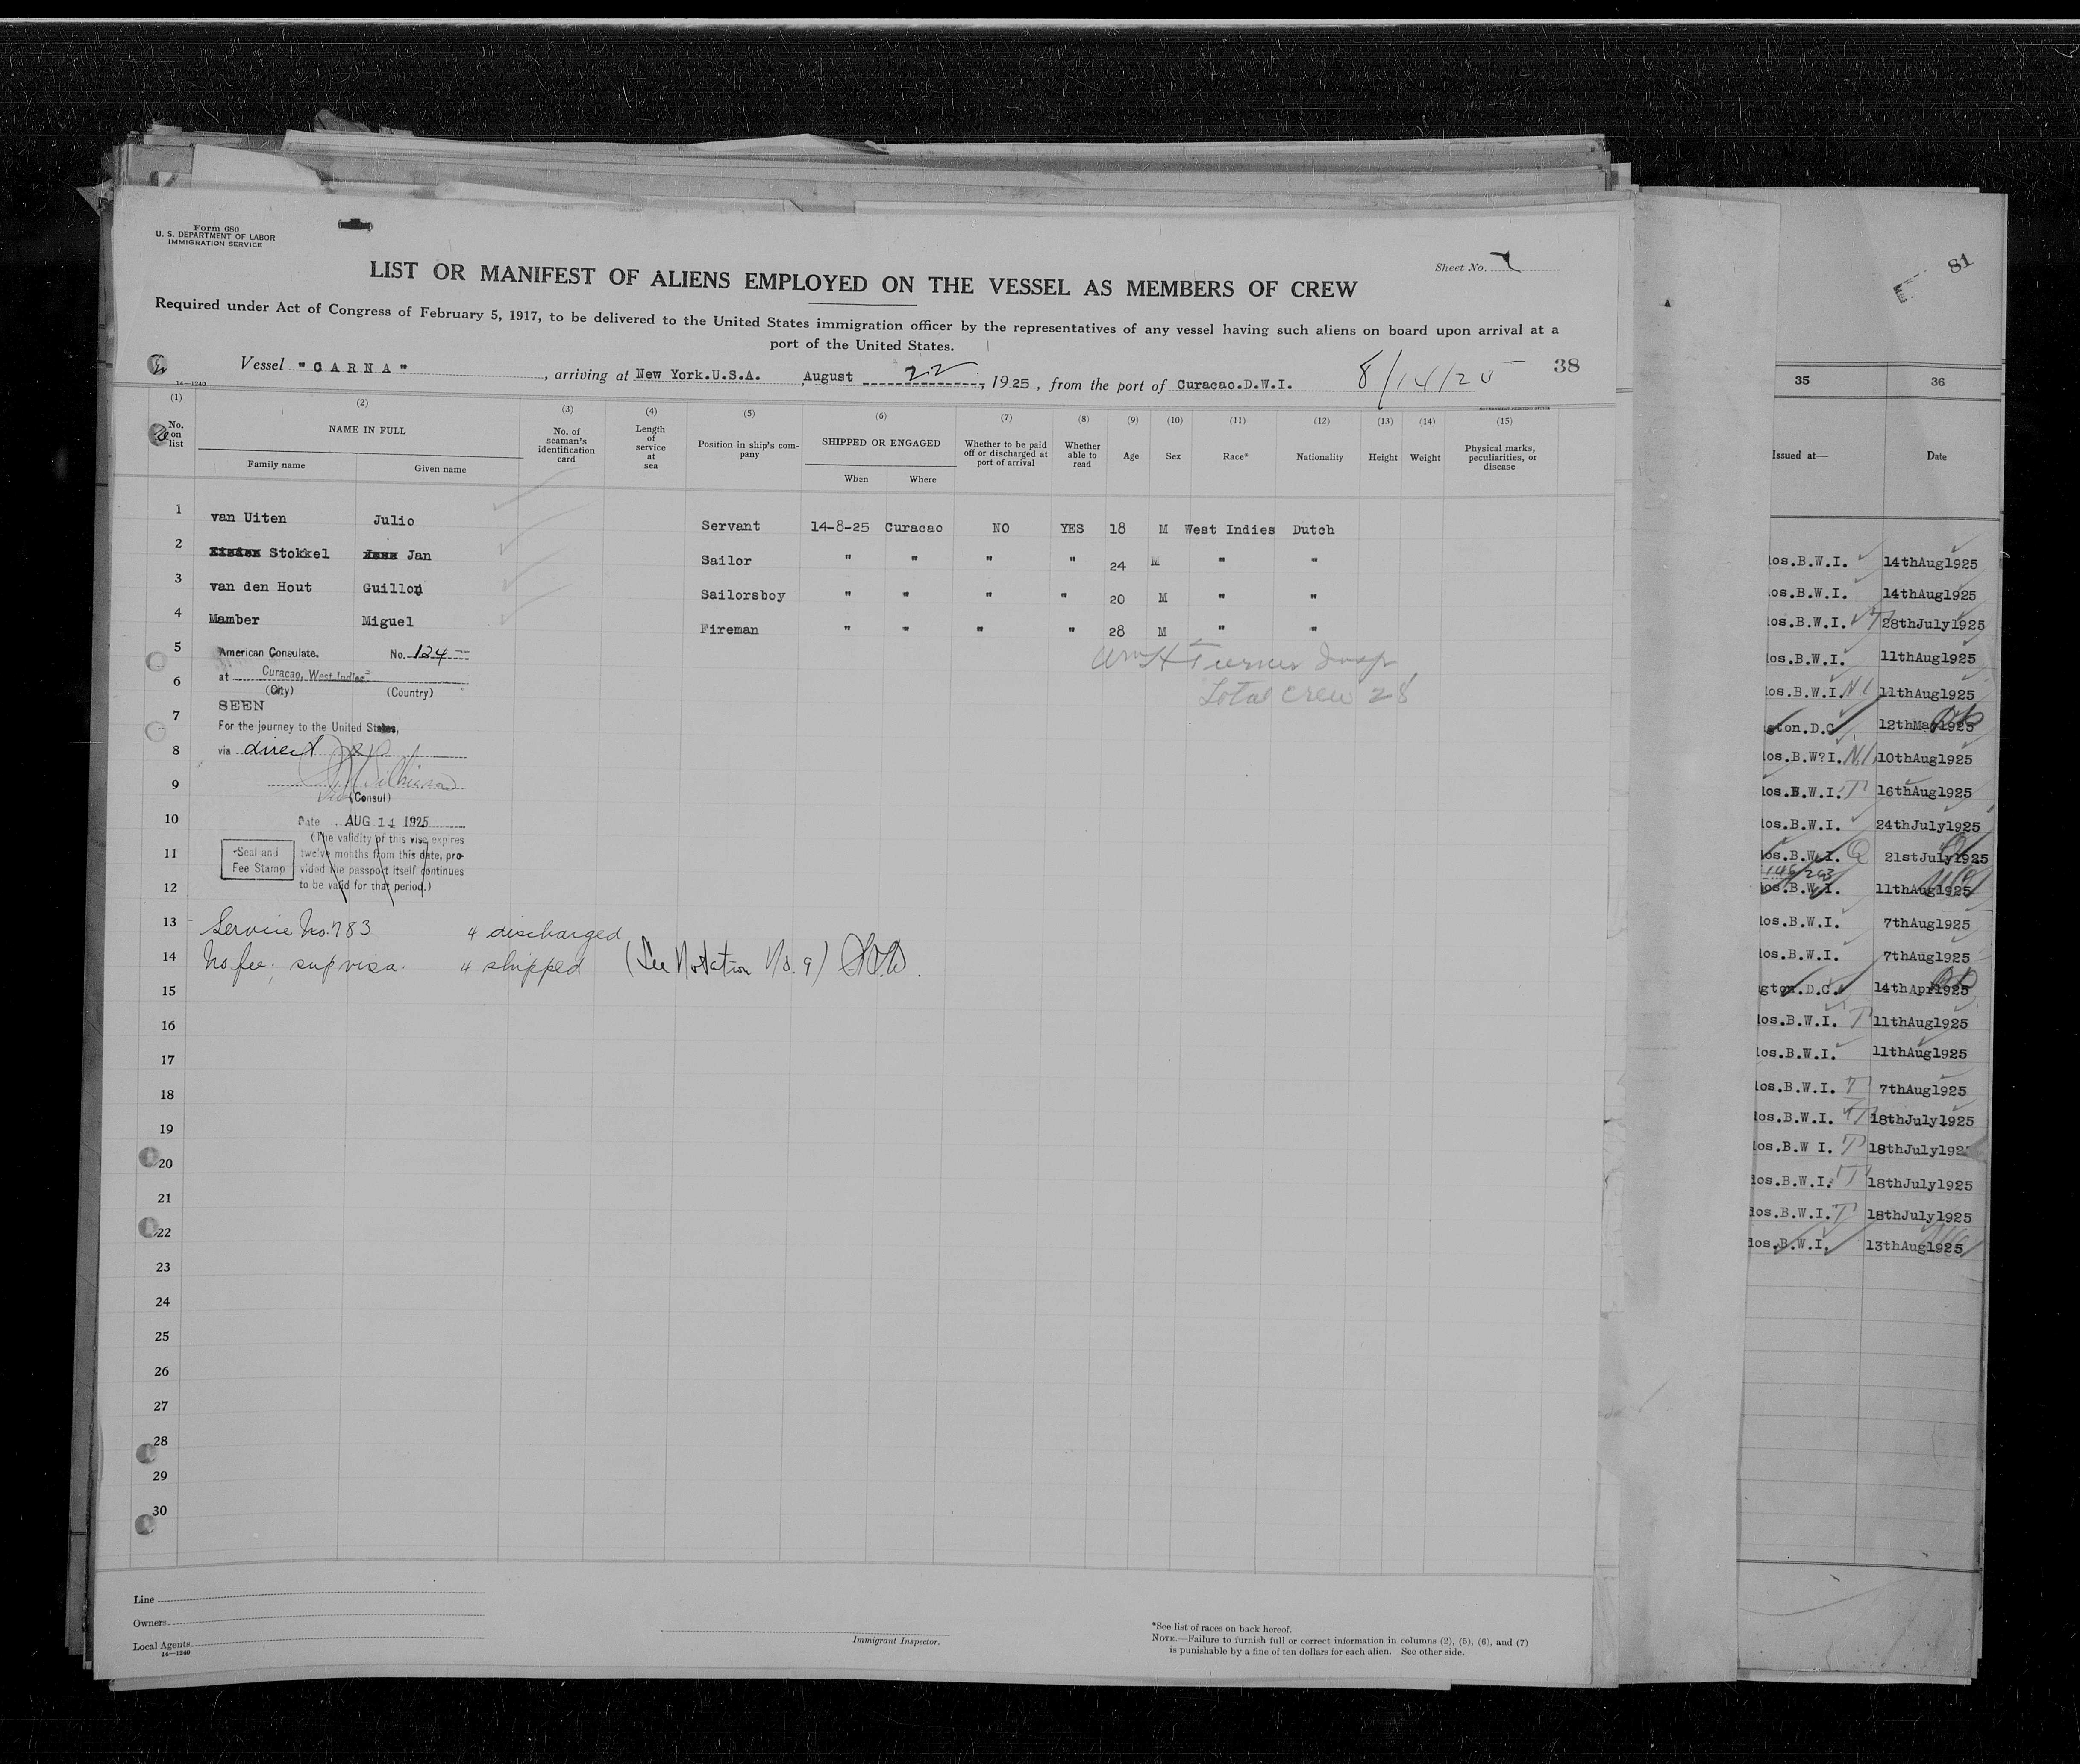 Form 680
U. S. DEPARTMENT OF LABOR
IMMIGRATION SERVICE
Sheet No.
LIST OR MANIFEST OF ALIENS EMPLOYED ON THE VESSEL AS MEMBERS OF CREW
Required under Act of Congress of February 5, 1917, to be delivered to the United States immigration officer by the representatives of any vessel having such aliens on board upon arrival at a
port of the United States.
Vessel "CARNA", arriving at New York.U.S.A. August 22, 1925, from the port of Curacao.D.W.I. 38
14—1240
(1) (2) (3) (4) (5) (6) (7) (8) (9) (10) (11) (12) (13) (14) (15)
No. on list NAME IN FULL Family name Given name No. of seaman's identification card Length of service at sea Position in ship's company SHIPPED OR ENGAGED When Where Whether to be paid off or discharged at port of arrival Whether able to read Age Sex Race* Nationality Height Weight Physical marks, peculiarities, or disease
1 van Uiten Julio Servant 14-8-25 Curacao NO YES 18 M West Indies Dutch
2 Stokkel Jan Sailor " " " " 24 M " "
3 van den Hout Guillon Sailorsboy " " " " 20 M " "
4 Mamber Miguel Fireman " " " " 28 M " "
5 American Consulate. No. 124
Wm H Turner Insp
6 at Curacao, West Indies
(City) (Country)
Total Crew 28
SEEN
7 For the journey to the United States,
8 via direct
9
(Consul)
10 Date AUG 14 1925
(The validity of this vise expires
11 twelve months from this date, pro-
vided the passport itself continues
12 to be valid for that period.)
Seal and
Fee Stamp
13 Service No. 783 4 discharged
14 No fee; sup visa. 4 shipped (See Notation No. 9)
15
16
17
18
19
20
21
22
23
24
25
26
27
28
29
30
Line
Owners
Local Agents
14—1240
Immigrant Inspector.
*See list of races on back hereof.
NOTE.—Failure to furnish full or correct information in columns (2), (5), (6), and (7)
is punishable by a fine of ten dollars for each alien. See other side.
81
35 36
Issued at— Date
los.B.W.I. 14thAug1925
los.B.W.I. 14thAug1925
los.B.W.I. 28thJuly1925
los.B.W.I. 11thAug1925
los.B.W.I. 11thAug1925
gton.D.C 12thMay1925
los.B.W?I. 10thAug1925
los.B.W.I. T 16thAug1925
los.B.W.I. 24thJuly1925
los.B.W.I. 21stJuly1925
los.B.W.I. 11thAug1925
los.B.W.I. 7thAug1925
los.B.W.I. 7thAug1925
gton.D.C. 14thApr1925
los.B.W.I. T 11thAug1925
los.B.W.I. 11thAug1925
los.B.W.I. T 7thAug1925
los.B.W.I. 18thJuly1925
los.B.W I. T 18thJuly192
los.B.W.I. T 18thJuly1925
los.B.W.I. T 18thJuly1925
los.B.W.I. 13thAug1925